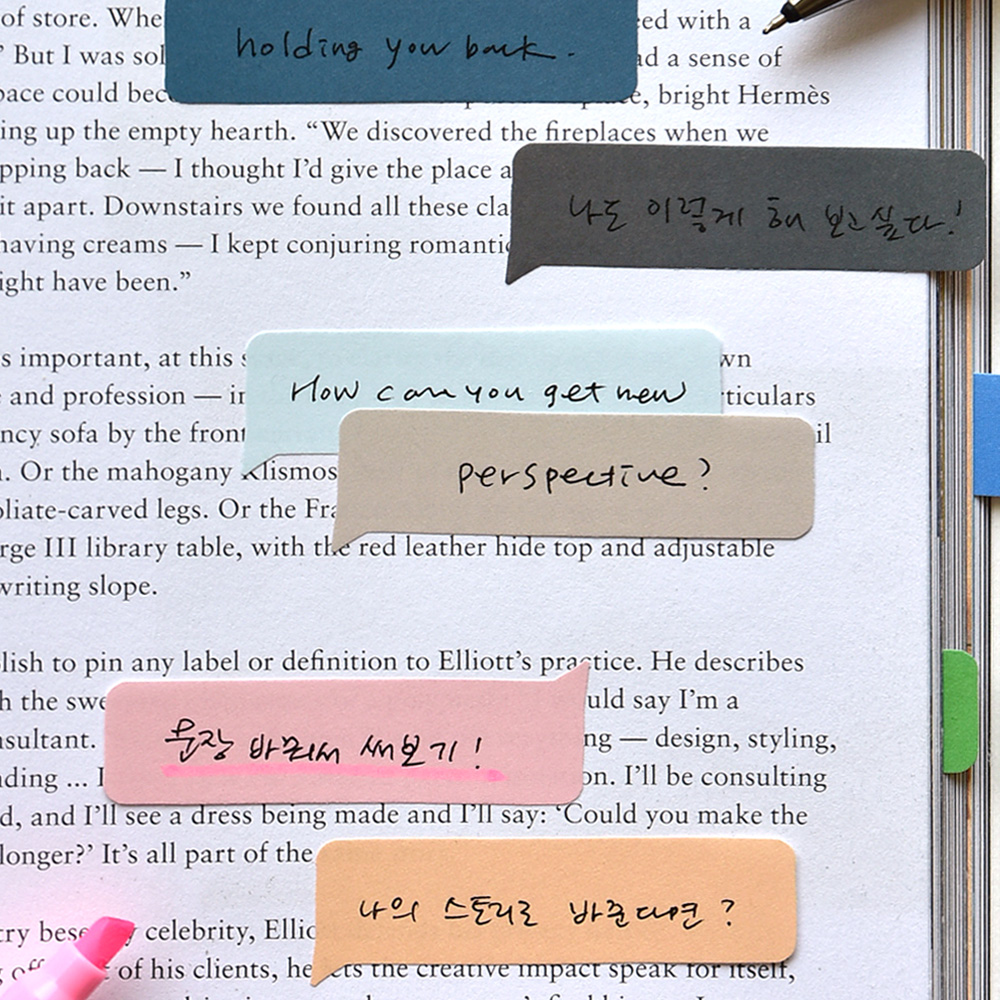 of store. Whe
ed with a
holding you back.
" But I was sol
ad a sense of
pace could bec
e, bright Hermès
ing up the empty hearth. “We discovered the fireplaces when we
pping back — I thought I’d give the place a
it apart. Downstairs we found all these cla
나도 이렇게 해 보고싶다!
having creams — I kept conjuring romantic
ight have been.”
s important, at this
wn
How can you get new
e and profession — in
rticulars
ncy sofa by the front
il
perspective?
. Or the mahogany Klismos
oliate-carved legs. Or the Fra
rge III library table, with the red leather hide top and adjustable
writing slope.
lish to pin any label or definition to Elliott’s practice. He describes
h the swe
uld say I’m a
문장 바꿔서 써보기!
nsultant.
ng — design, styling,
nding ... I
on. I’ll be consulting
d, and I’ll see a dress being made and I’ll say: ‘Could you make the
longer?’ It’s all part of the
나의 스토리로 바꾼다면?
try bes
celebrity, Ellio
of his clients, he
ets the creative impact speak for itself,